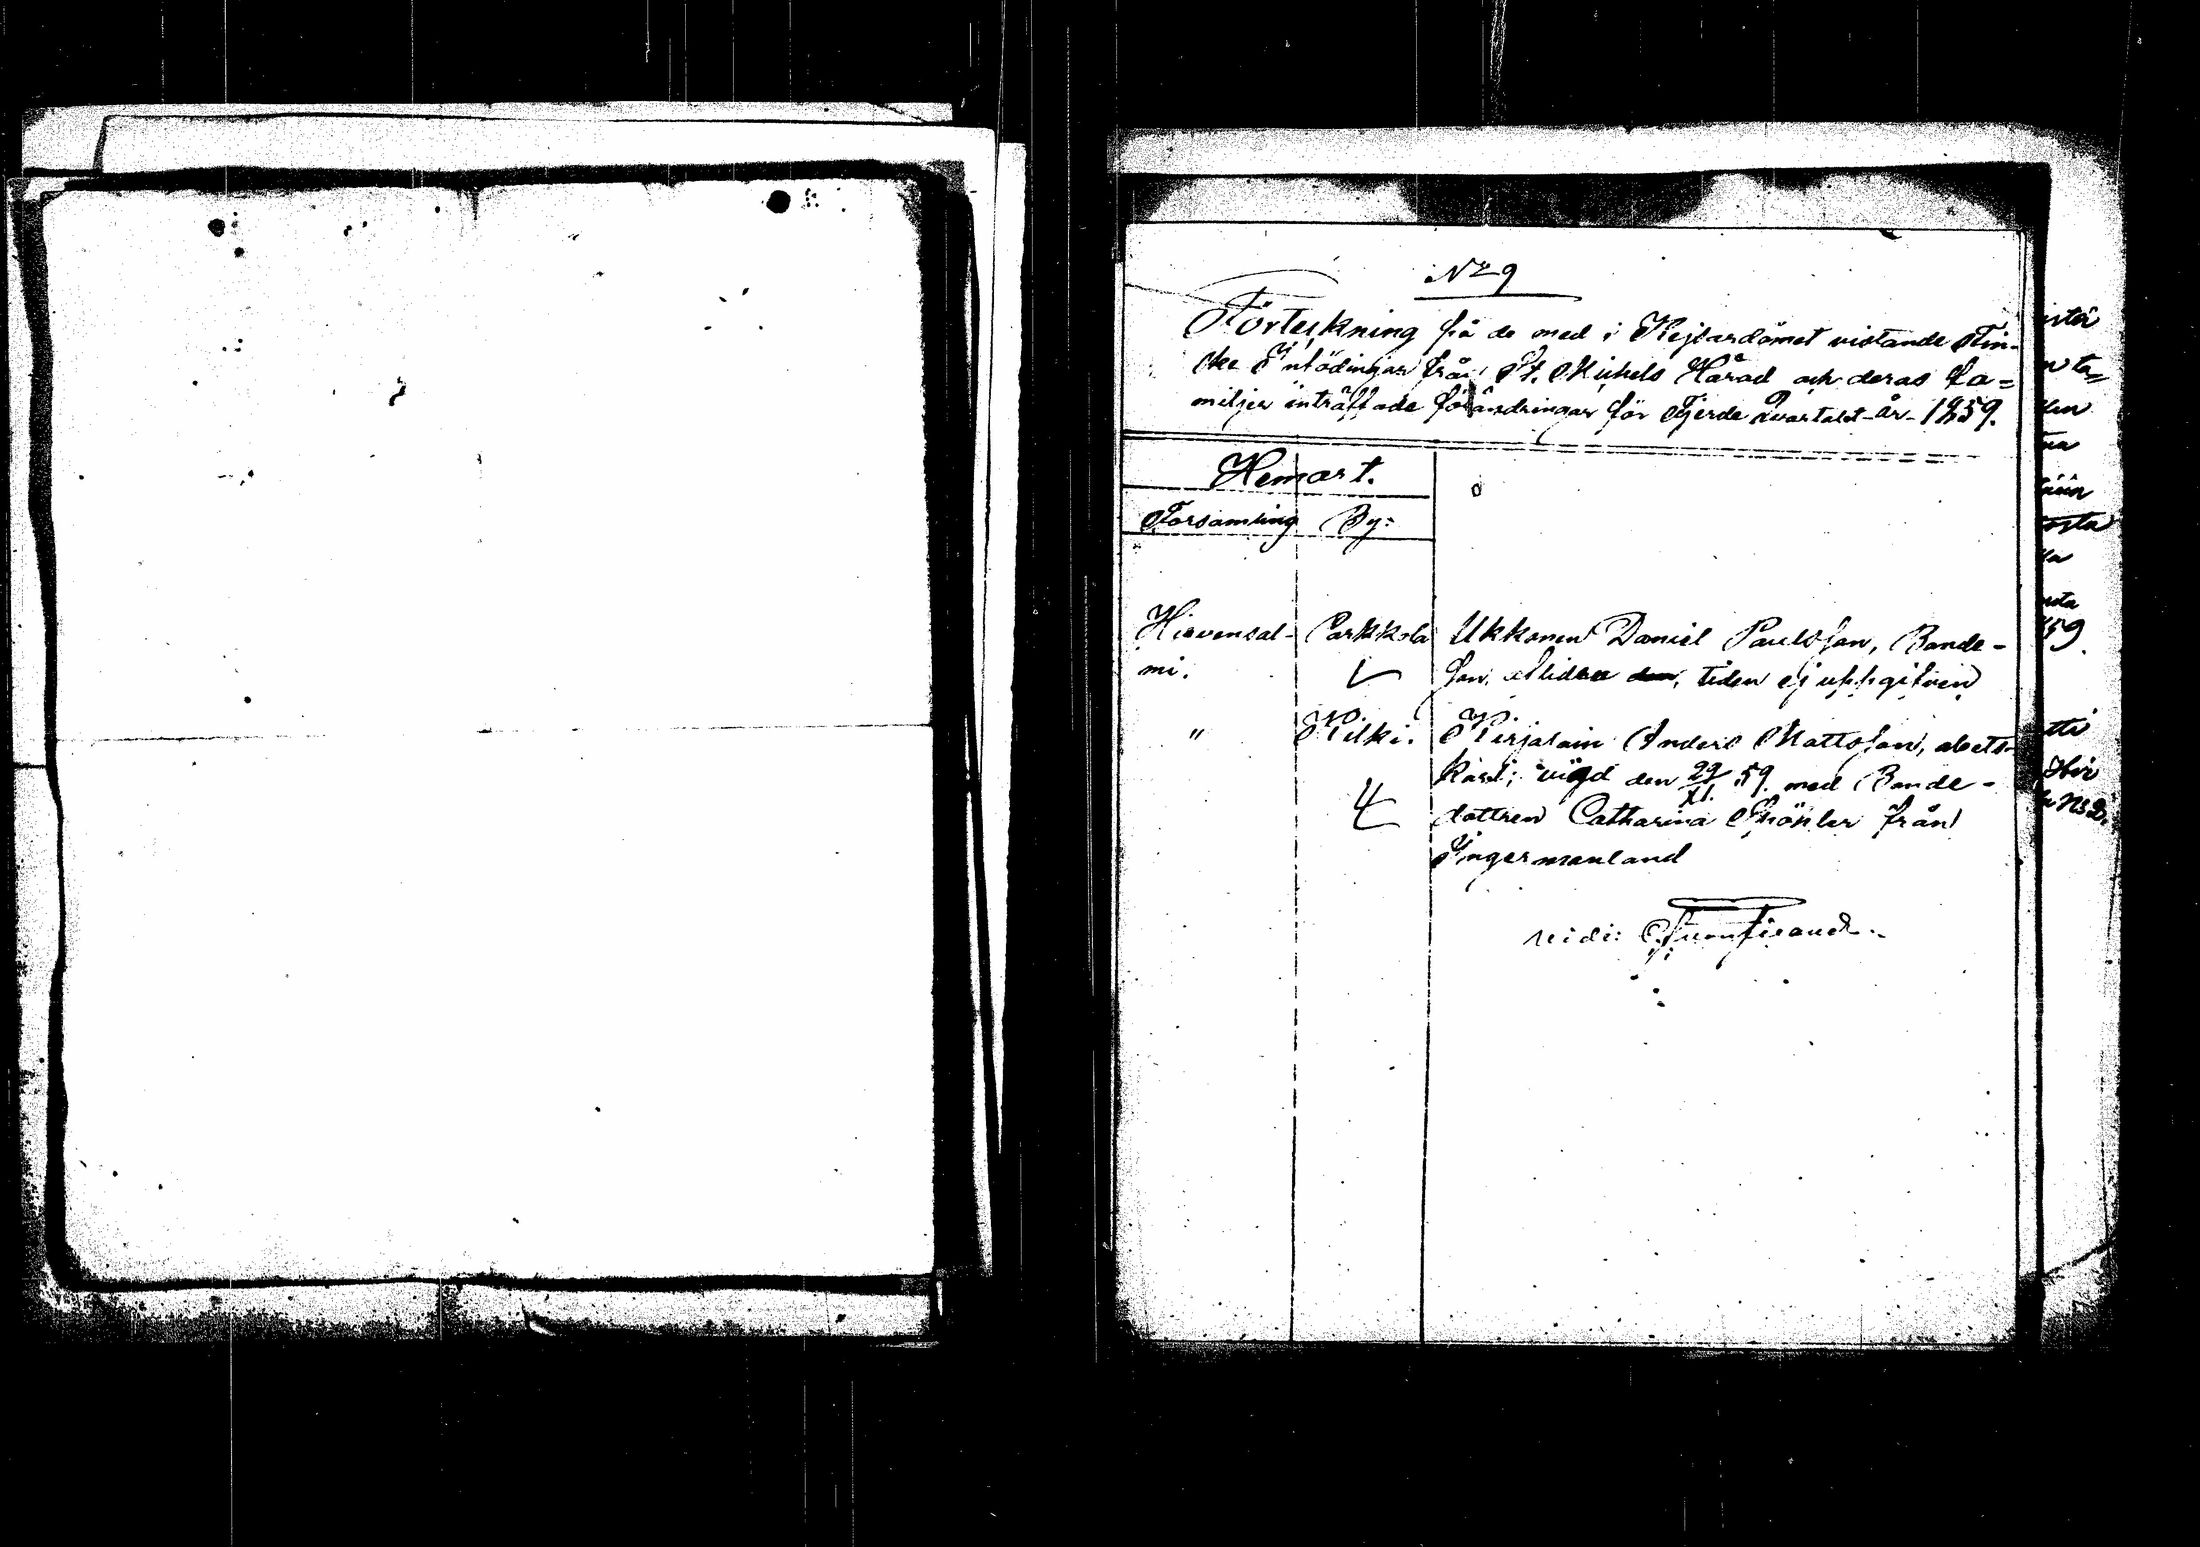 No 9
Förteckning på de med i Kejsardömet vistande Fin-
ske Infödingar från St. Michels Härad och deras fa=
miljer inträffade förändringar för Fjerde Qvartalet år 1859.
Hemort.
Församling By:
Hirvensal- Parkkola Ukkonen Daniel Paulsson, Bonde-
mi. son, tiden ej uppgifven
" Kilki. Kirjarain Anders Mattsson, arbets-
karl; vigd den 29/XI. 59. med Bonde-
dottren Catharina från
Ingermanland
vidi: